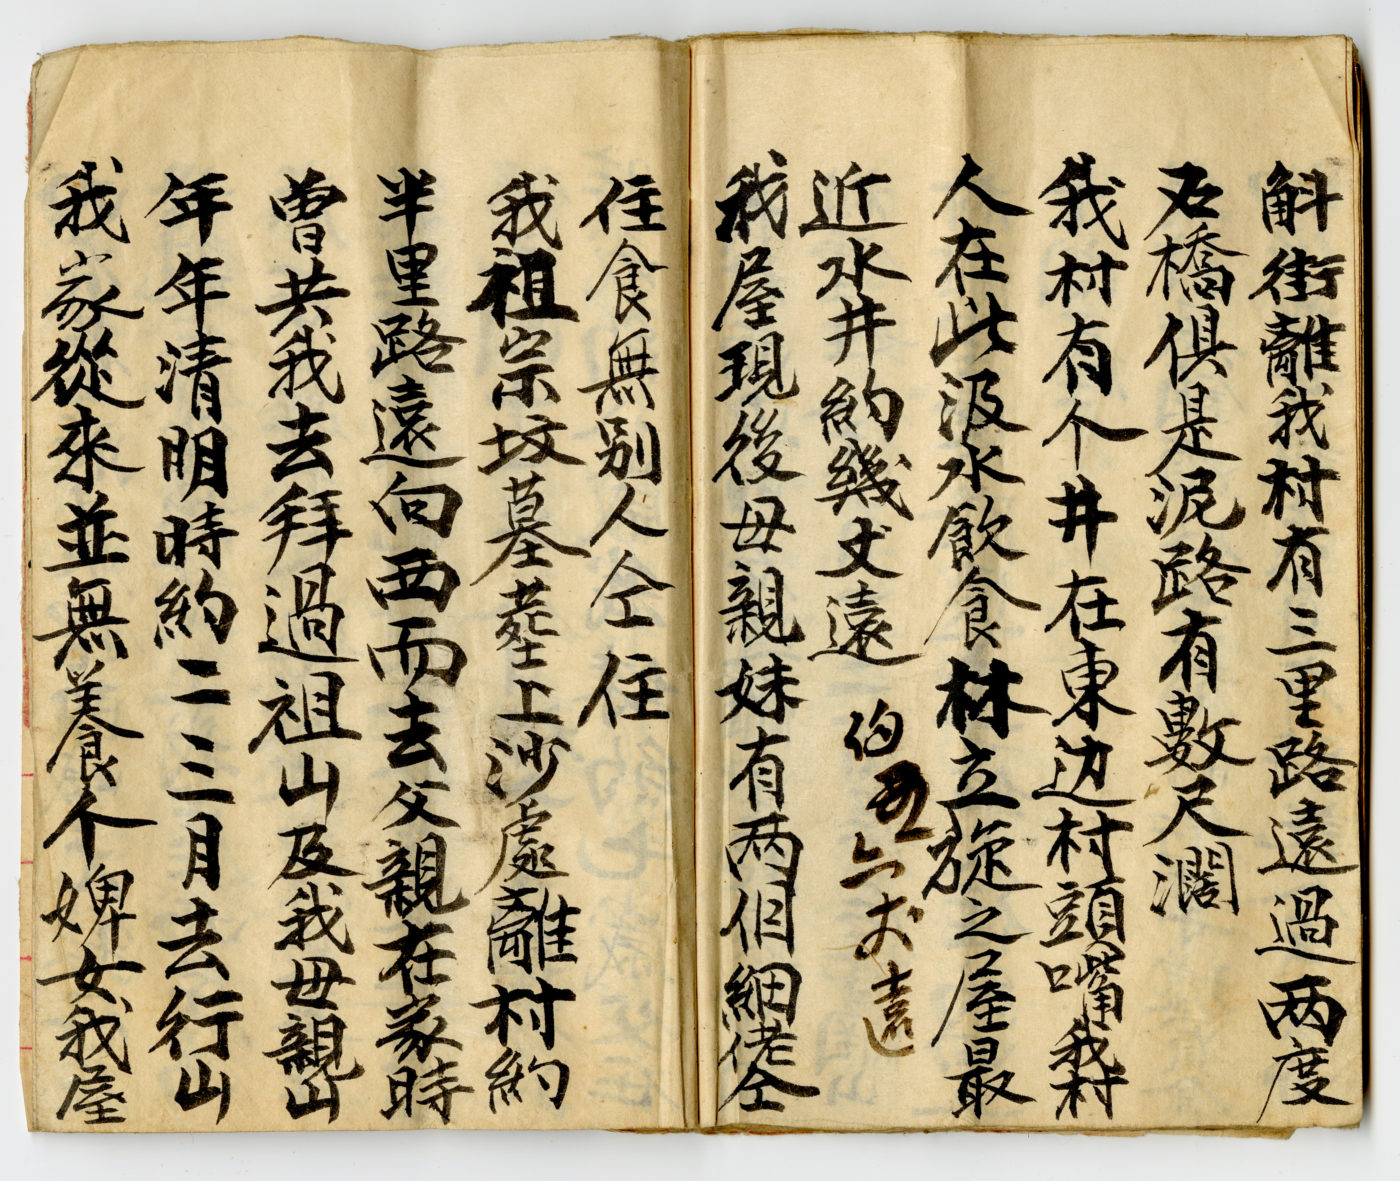 斛街離我村有三里路遠過两度
石橋俱是泥路有數尺濶
我村有个井在東边村頭嘴我村
人在此汲水飲食林立旋之屋最
近水井約幾丈遠
約五六丈遠
我屋現後母親妹有两個細佬仝
住食無別人仝住
我祖宗坟墓塟上沙處離村約
半里路遠向西而去父親在家時
曾共我去拜過祖山及我母親山
年年清明時約二三月去行山
我家從來並無養个婢女我屋